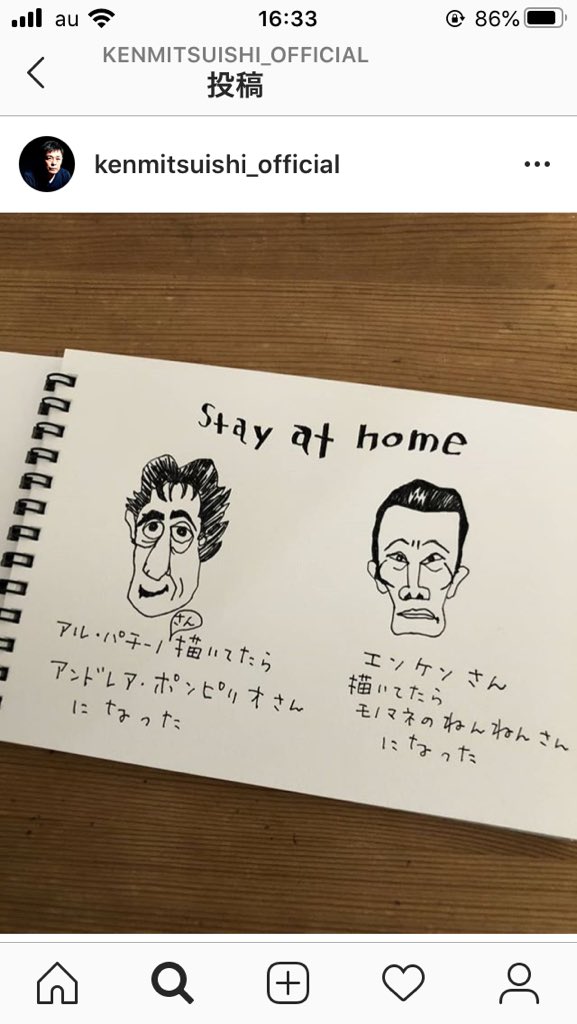 au 16:33 86%
KENMITSUISHI_OFFICIAL
投稿
kenmitsuishi_official
Stay at home
さん
アル・パチーノ描いてたら
アンドレア・ポンピリオさん
になった
エンケンさん
描いてたら
モノマネのねんねんさん
になった